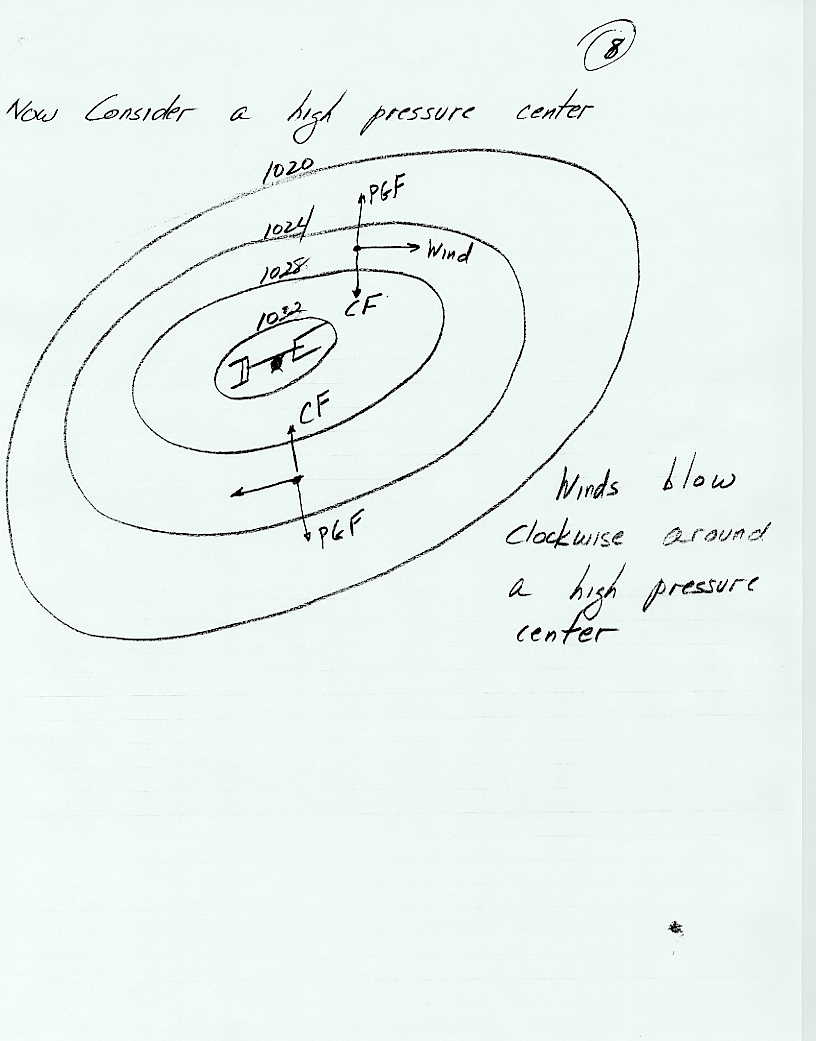 8
Now Consider a high pressure center
1020
PGF
1024
Wind
1028
CF
1032
H
CF
PGF
Winds blow
Clockwise around
a high pressure
center